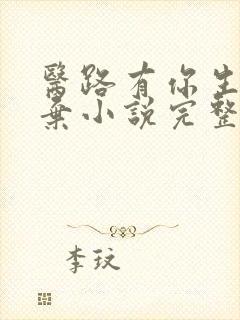 醫路有你生
棄小說完整
李玟